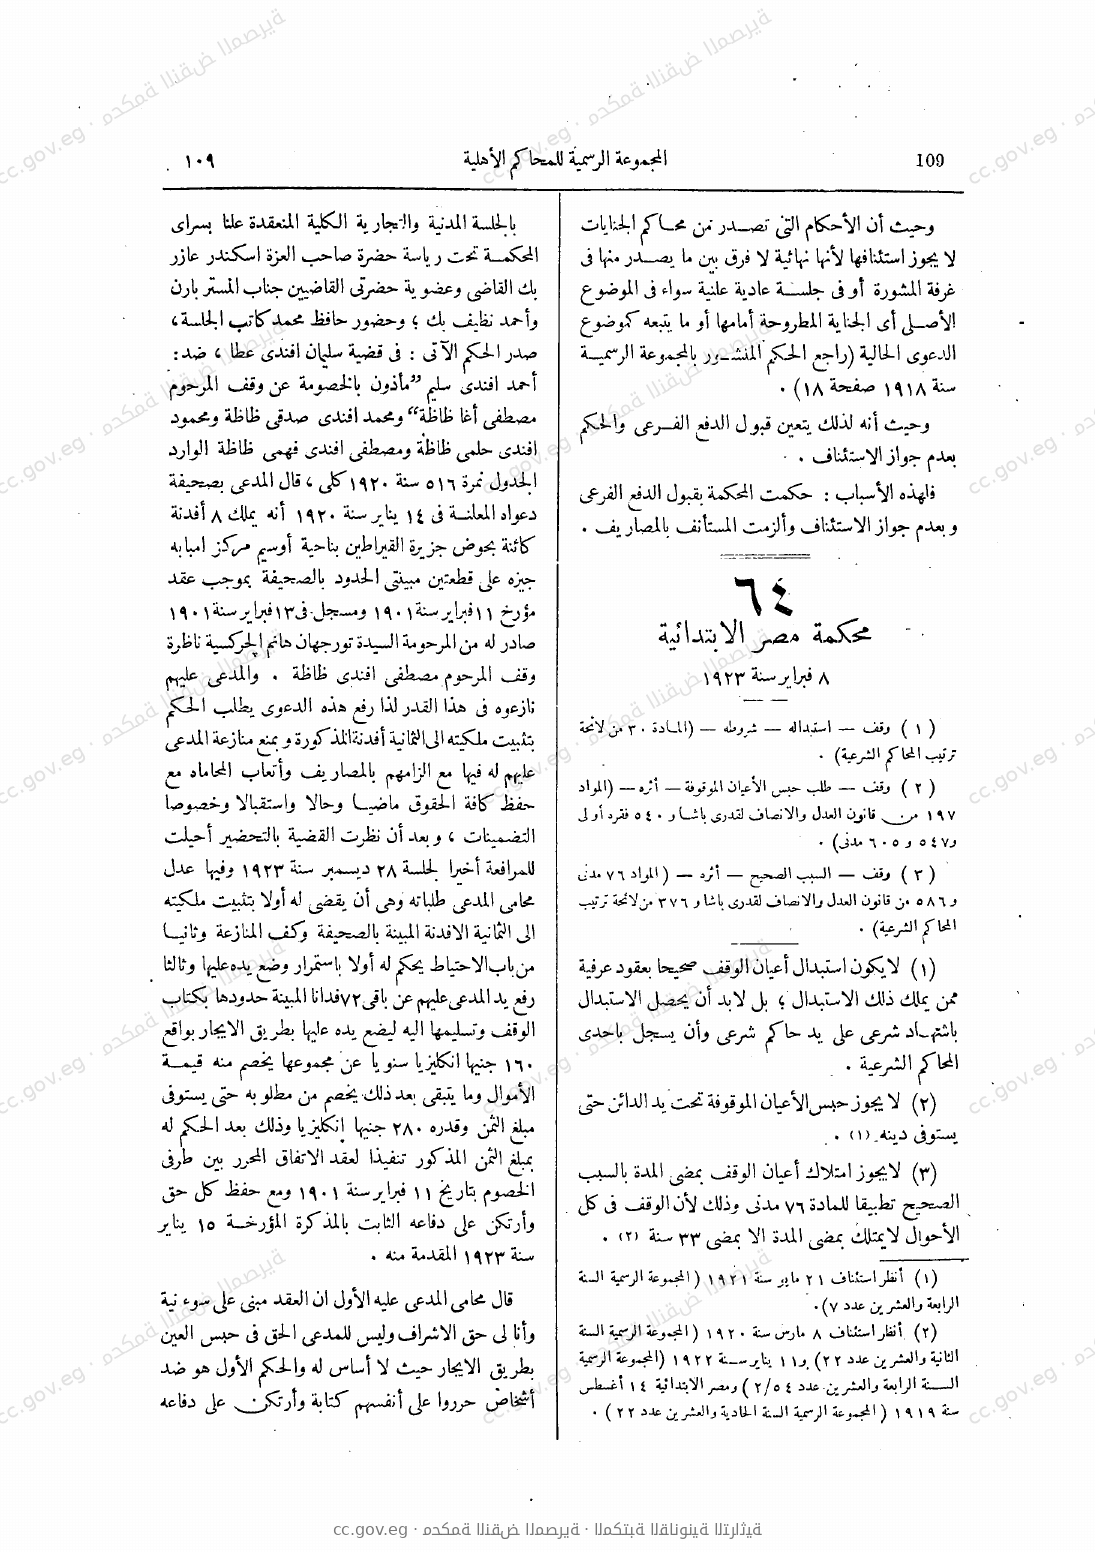 109
المجموعة الرسمية للمحاكم الأهلية
١٠٩
وحيث أن الأحكام التى تصدر من محاكم الجنايات
لا يجوز استئنافها لأنها نهائية لا فرق بين ما يصدر منها فى
غرفة المشورة أو فى جلسة عادية علنية سواء فى الموضوع
الأصلى أى الجناية المطروحة أمامها أو ما يتبعه كموضوع
الدعوى الحالية (راجع الحكم المنشور بالمجموعة الرسمية
سنة ١٩١٨ صفحة ١٨) .
وحيث أنه لذلك يتعين قبول الدفع الفرعى والحكم
بعدم جواز الاستئناف .
فلهذه الأسباب : حكمت المحكمة بقبول الدفع الفرعى
وبعدم جواز الاستئناف وألزمت المستأنف بالمصاريف .
٦٤
محكمة مصر الابتدائية
٨ فبراير سنة ١٩٢٣
(١) وقف — استبداله — شروطه — (المادة ٣٠ من لائحة
ترتيب المحاكم الشرعية) .
(٢) وقف — طلب حبس الأعيان الموقوفة — أثره — (المواد
١٩٧ من قانون العدل والانصاف لقدرى باشا و ٥٤٠ فقرة أولى
و٥٤٧ و ٦٠٥ مدنى) .
(٣) وقف — السبب الصحيح — أثره — (المواد ٧٦ مدنى
و ٥٨٦ من قانون العدل والانصاف لقدرى باشا و ٣٧٦ من لائحة ترتيب
المحاكم الشرعية) .
(١) لا يكون استبدال أعيان الوقف صحيحا بعقود عرفية
ممن يملك ذلك الاستبدال ؛ بل لابد أن يحصل الاستبدال
باشتهاد شرعى على يد حاكم شرعى وأن يسجل باحدى
المحاكم الشرعية .
(٢) لا يجوز حبس الأعيان الموقوفة تحت يد الدائن حتى
يستوفى دينه (١) .
(٣) لا يجوز امتلاك أعيان الوقف بمضى المدة بالسبب
الصحيح تطبيقا للمادة ٧٦ مدنى وذلك لأن الوقف فى كل
الأحوال لا يمتلك بمضى المدة الا بمضى ٣٣ سنة (٢) .
(١) أنظر استئناف ٢١ مايو سنة ١٩٢١ (المجموعة الرسمية السنة
الرابعة والعشرين عدد ٧) .
(٢) أنظر استئناف ٨ مارس سنة ١٩٢٠ (المجموعة الرسمية السنة
الثانية والعشرين عدد ٢٢) و١١ يناير سنة ١٩٢٢ (المجموعة الرسمية
السنة الرابعة والعشرين عدد ٢/٥٤) ومصر الابتدائية ١٤ أغسطس
سنة ١٩١٩ (المجموعة الرسمية السنة الحادية والعشرين عدد ٢٢) .
بالجلسة المدنية والتجارية الكلية المنعقدة علنا بسراى
المحكمة تحت رياسة حضرة صاحب العزة اسكندر عازر
بك القاضى وعضوية حضرتى القاضيين جناب المستر بارن
وأحمد نظيف بك ؛ وحضور حافظ محمد كاتب الجلسة ،
صدر الحكم الآتى : فى قضية سليمان افندى عطا ، ضد :
أحمد افندى سليم "مأذون بالخصومة عن وقف المرحوم
مصطفى أغا ظاظة" ومحمد افندى صدقى ظاظة ومحمود
افندى حلمى ظاظة ومصطفى افندى فهمى ظاظة الوارد
الجدول نمرة ٥١٦ سنة ١٩٢٠ كلى ، قال المدعى بصحيفة
دعواه المعلنة فى ١٤ يناير سنة ١٩٢٠ أنه يملك ٨ أفدنة
كائنة بحوض جزيرة القيراطين بناحية أوسيم مركز امبابه
جيزه على قطعتين مبينتى الحدود بالصحيفة بموجب عقد
مؤرخ ١١ فبراير سنة ١٩٠١ ومسجل فى ١٣ فبراير سنة ١٩٠١
صادر له من المرحومة السيدة تورجهان هانم الجركسية ناظرة
وقف المرحوم مصطفى افندى ظاظة . والمدعى عليهم
نازعوه فى هذا القدر لذا رفع هذه الدعوى يطلب الحكم
بتثبيت ملكيته الى الثمانية أفدنة المذكورة وبمنع منازعة المدعى
عليهم له فيها مع الزامهم بالمصاريف وأتعاب المحاماه مع
حفظ كافة الحقوق ماضيا وحالا واستقبالا وخصوصا
التضمينات ، وبعد أن نظرت القضية بالتحضير أحيلت
للمرافعة أخيرا لجلسة ٢٨ ديسمبر سنة ١٩٢٣ وفيها عدل
محامى المدعى طلباته وهى أن يقضى له أولا بتثبيت ملكيته
الى الثمانية الافدنة المبينة بالصحيفة وكف المنازعة وثانيا
من باب الاحتياط يحكم له أولا باستمرار وضع يده عليها وثالثا
رفع يد المدعى عليهم عن باقى ٧٢ فدانا المبينة حدودها بكتاب
الوقف وتسليمها اليه ليضع يده عليها بطريق الايجار بواقع
١٦٠ جنيها انكليزيا سنويا عن مجموعها يخصم منه قيمة
الأموال وما يتبقى بعد ذلك يخصم من مطلوبه حتى يستوفى
مبلغ الثمن وقدره ٢٨٠ جنيها إنكليزيا وذلك بعد الحكم له
بمبلغ الثمن المذكور تنفيذا لعقد الاتفاق المحرر بين طرفى
الخصوم بتاريخ ١١ فبراير سنة ١٩٠١ ومع حفظ كل حق
وأرتكن على دفاعه الثابت بالمذكرة المؤرخة ١٥ يناير
سنة ١٩٢٣ المقدمة منه .
قال محامى المدعى عليه الأول ان العقد مبنى على سوء نية
وأنا لى حق الاشراف وليس للمدعى الحق فى حبس العين
بطريق الايجار حيث لا أساس له والحكم الأول هو ضد
أشخاص حرروا على أنفسهم كتابة وأرتكن على دفاعه
cc.gov.eg · محكمة النقض المصرية · المكتبة القانونية التراثية